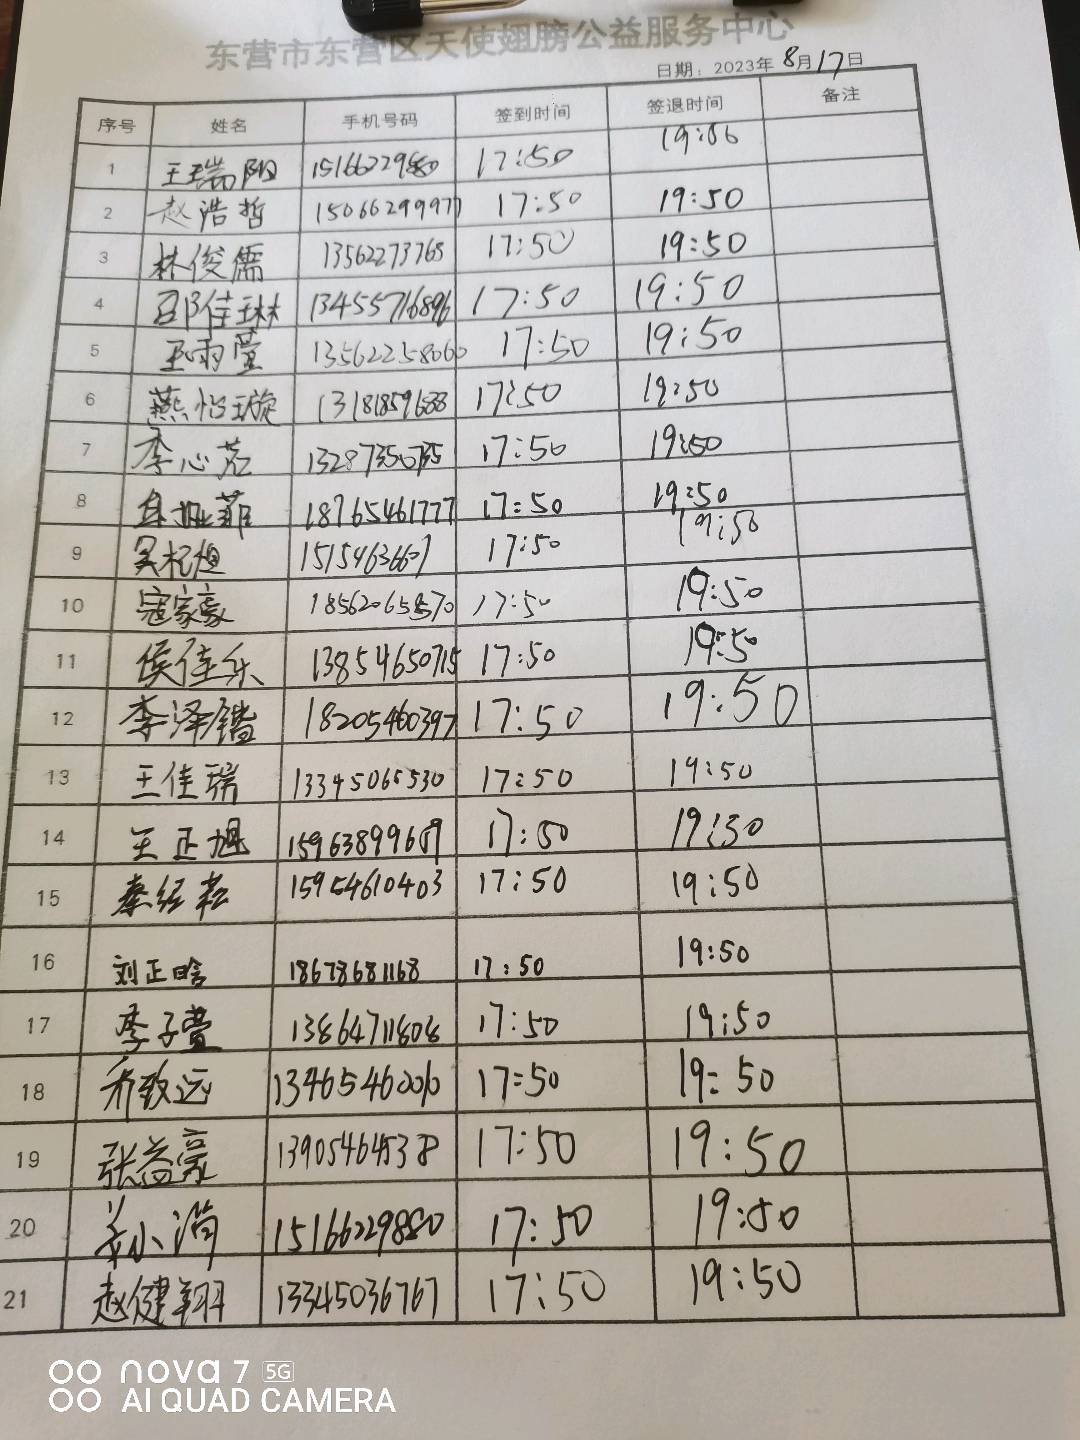 东营市东营区天使翅膀公益服务中心
日期：2023年8月17日
序号 姓名 手机号码 签到时间 签退时间 备注
1 王瑞阳 15166229880 17:50 19:50
2 赵浩哲 15066299977 17:50 19:50
3 林俊儒 13562273768 17:50 19:50
4 邵佳琳 13455716896 17:50 19:50
5 王雨萱 13562258060 17:50 19:50
6 燕怡璇 13181859688 17:50 19:50
7 李心茗 13287350735 17:50 19:50
8 18765461777 17:50 19:50
9 15154636607 17:50 19:50
10 寇家豪 18562065570 17:50 19:50
11 侯佳乐 13854650715 17:50 19:50
12 李泽锴 18205460397 17:50 19:50
13 王佳瑞 13345065530 17:50 19:50
14 王正旭 15963899609 17:50 19:50
15 秦经松 15954610403 17:50 19:50
16 刘正晗 18678681168 17:50 19:50
17 李子萱 13864711808 17:50 19:50
18 乔致远 13465460010 17=50 19=50
19 张益豪 13905464538 17:50 19:50
20 15166229880 17:50 19:50
21 赵健翔 13345036767 17:50 19:50
nova 7 5G
AI QUAD CAMERA